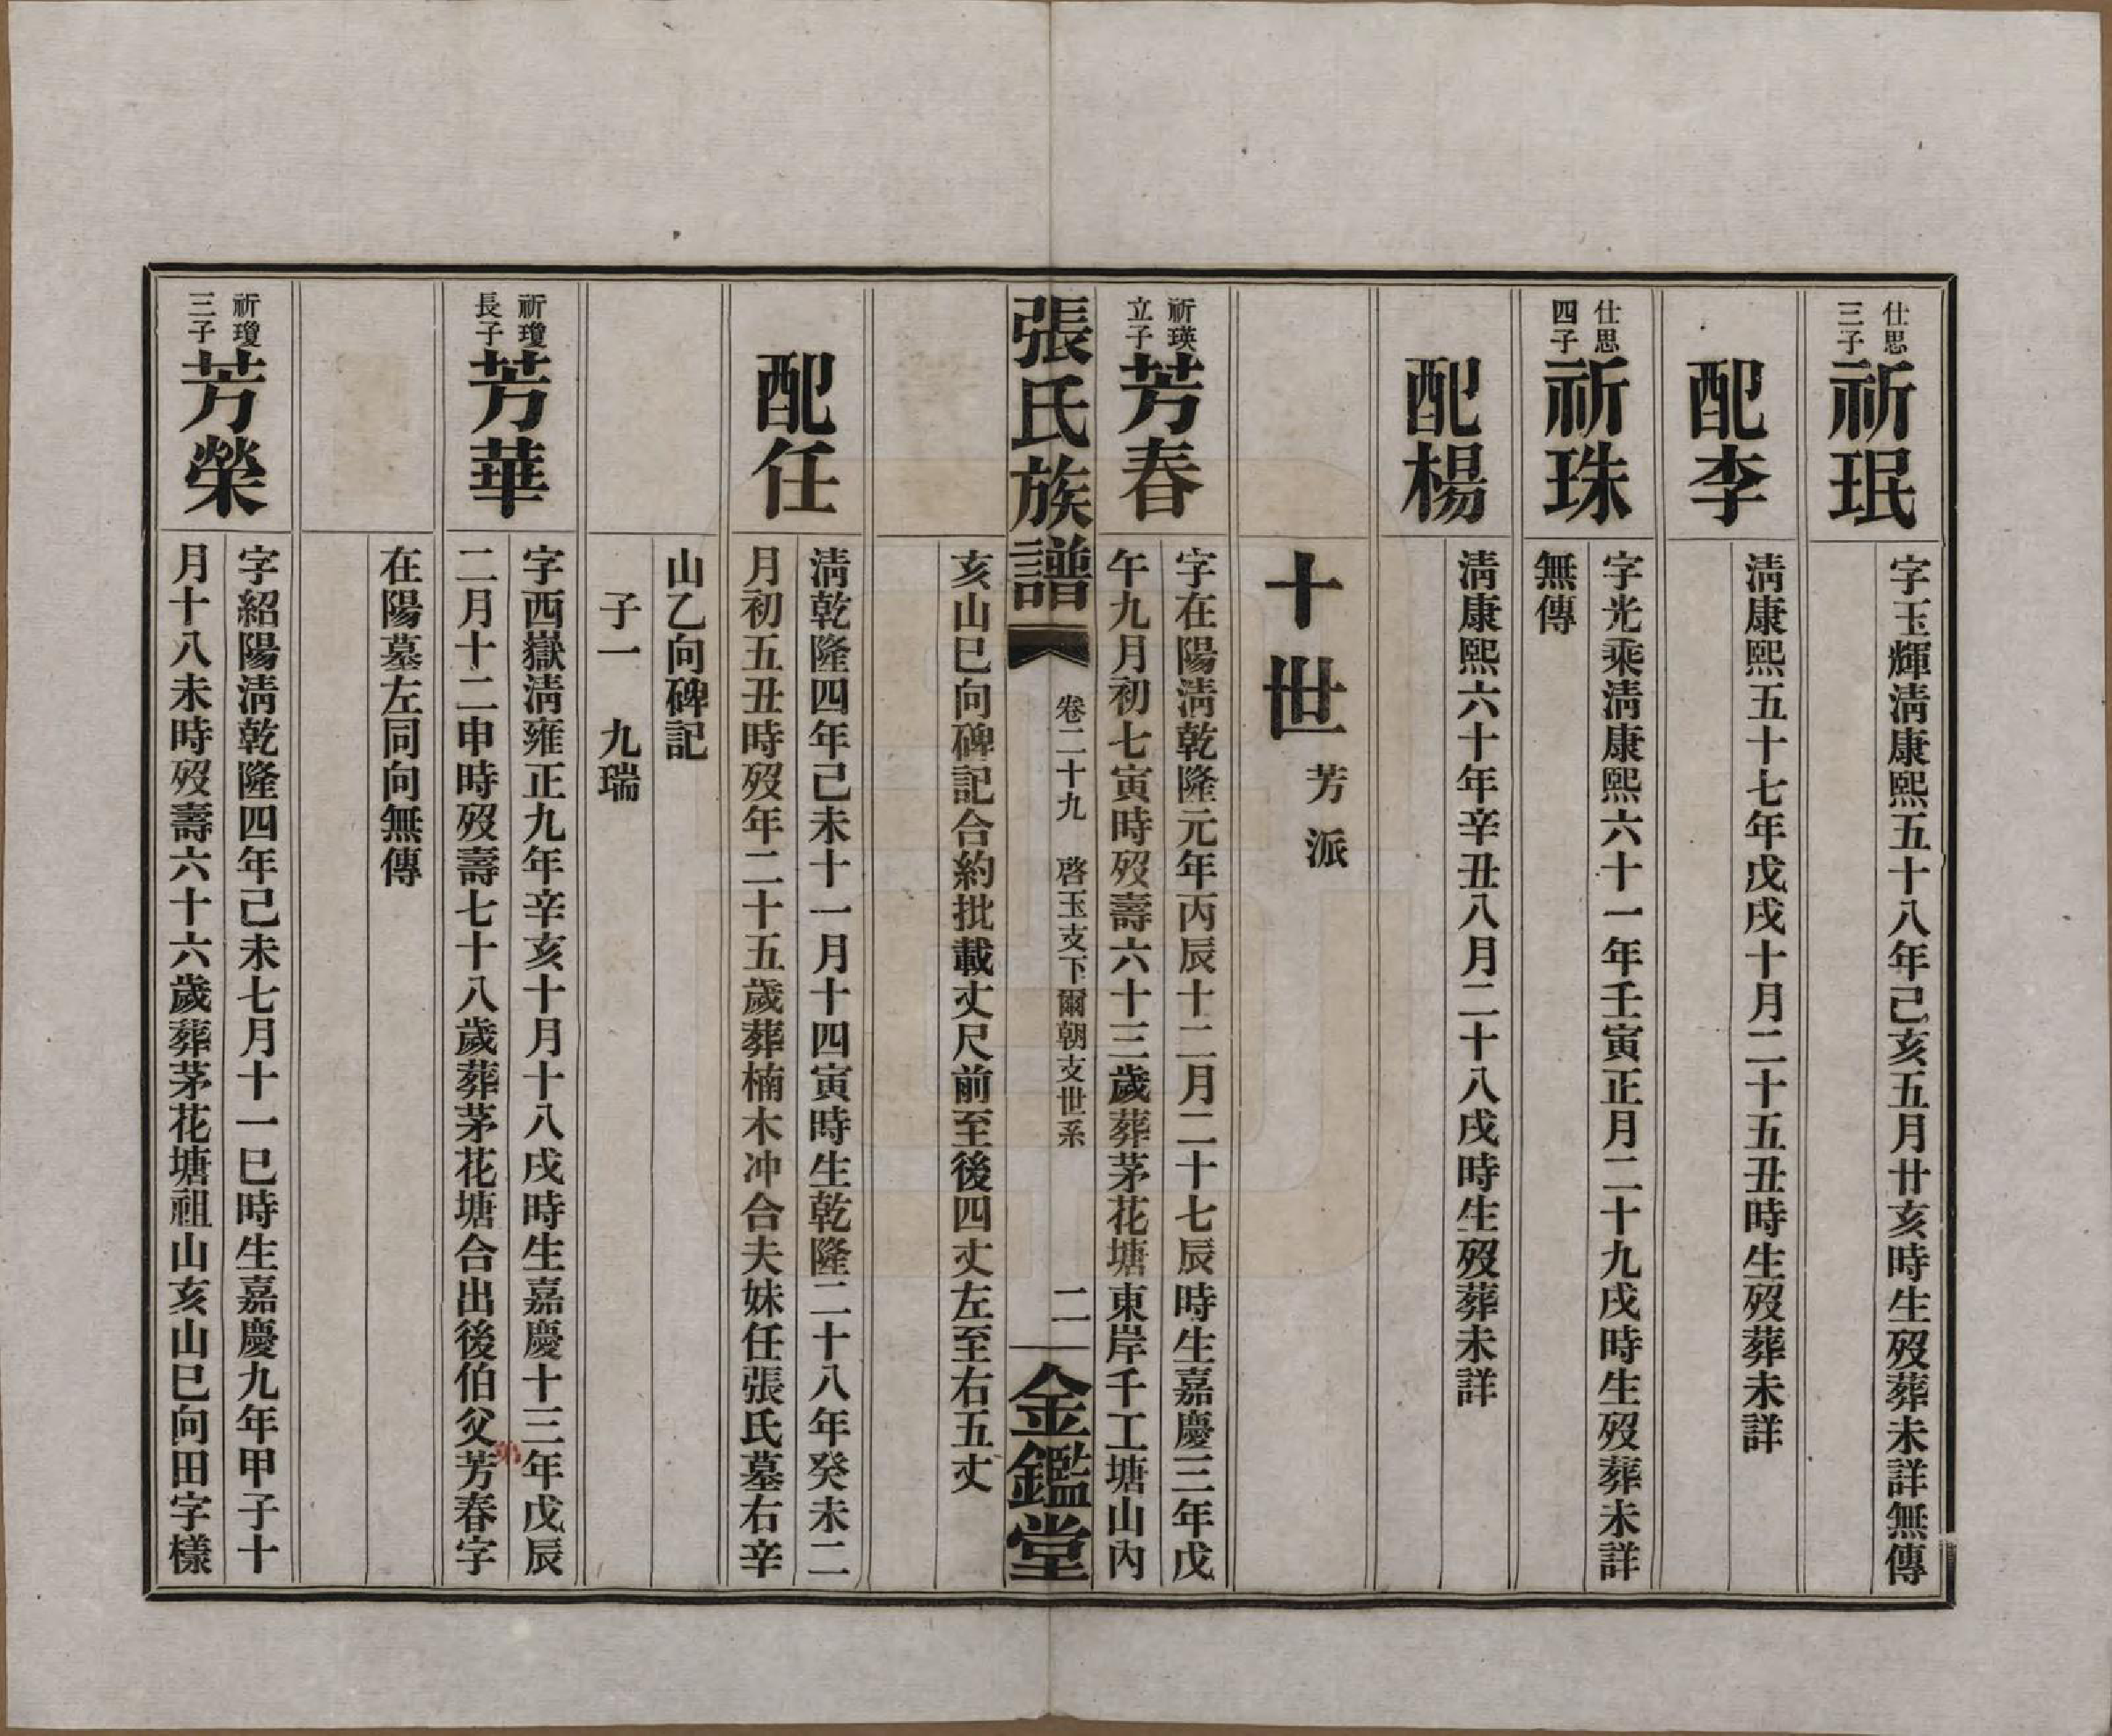 仕思
三子
祈珉
字玉輝淸康熙五十八年己亥五月廿亥時生歿葬未詳無傳
配李
淸康熙五十七年戊戌十月二十五丑時生歿葬未詳
仕思
四子
祈珠
字光乘淸康熙六十一年壬寅正月二十九戌時生歿葬未詳
無傳
配楊
淸康熙六十年辛丑八月二十八戌時生歿葬未詳
十世 芳派
祈瑛
立子
芳春
字在陽淸乾隆元年丙辰十二月二十七辰時生嘉慶三年戊
午九月初七寅時歿壽六十三歲葬茅花塘東岸千工塘山內
張氏族譜 卷二十九 啓玉支下爾朝支世系 二 金鑑堂
亥山巳向碑記合約批載丈尺前至後四丈左至右五丈
配任
淸乾隆四年己未十一月十四寅時生乾隆二十八年癸未二
月初五丑時歿年二十五歲葬楠木冲合夫妹任張氏墓右辛
山乙向碑記
子一 九瑞
祈瓊
長子
芳華
字西嶽淸雍正九年辛亥十月十八戌時生嘉慶十三年戊辰
二月十二申時歿壽七十八歲葬茅花塘合出後伯父芳春字
弟
在陽墓左同向無傳
祈瓊
三子
芳榮
字紹陽淸乾隆四年己未七月十一巳時生嘉慶九年甲子十
月十八未時歿壽六十六歲葬茅花塘祖山亥山巳向田字樣